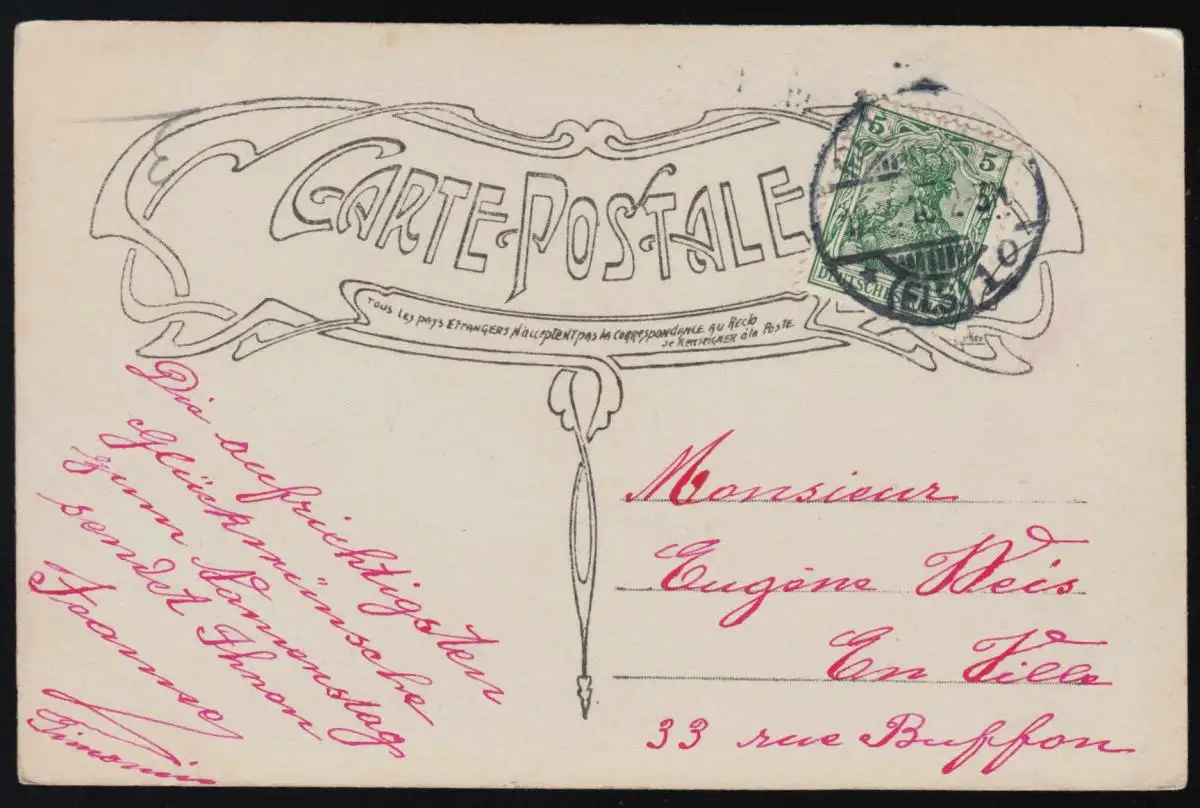 CARTE-POSTALE
TOUS LES PAYS ETRANGERS N'ACCEPTENT PAS LA CORRESPONDANCE AU RECTO
SE RENSEIGNER à LA POSTE
5 5
DEUTSCHES
(ELS) 10
Die aufrichtigsten
Glückwünsche
zum Namenstag
sendet Ihnen
Jeanne
Monsieur
Eugène Weis
En Ville
33 rue Buffon